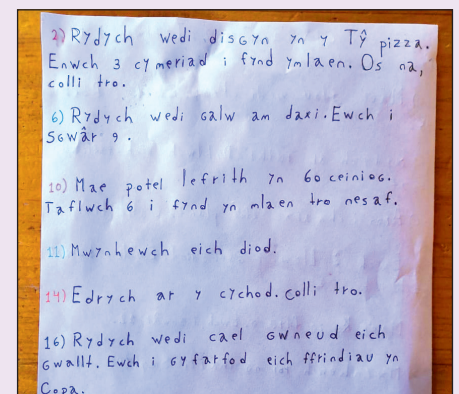 2) Rydych wedi disgyn yn y Tŷ pizza.
Enwch 3 cymeriad i fynd ymlaen. Os na,
colli tro.
6) Rydych wedi galw am daxi. Ewch i
Sgwâr 9.
10) Mae potel lefrith yn 60 ceiniog.
Taflwch 6 i fynd yn mlaen tro nesaf.
11) Mwynhewch eich diod.
14) Edrych ar y cychod. Colli tro.
16) Rydych wedi cael gwneud eich
gwallt. Ewch i gyfarfod eich ffrindiau yn
Copa.